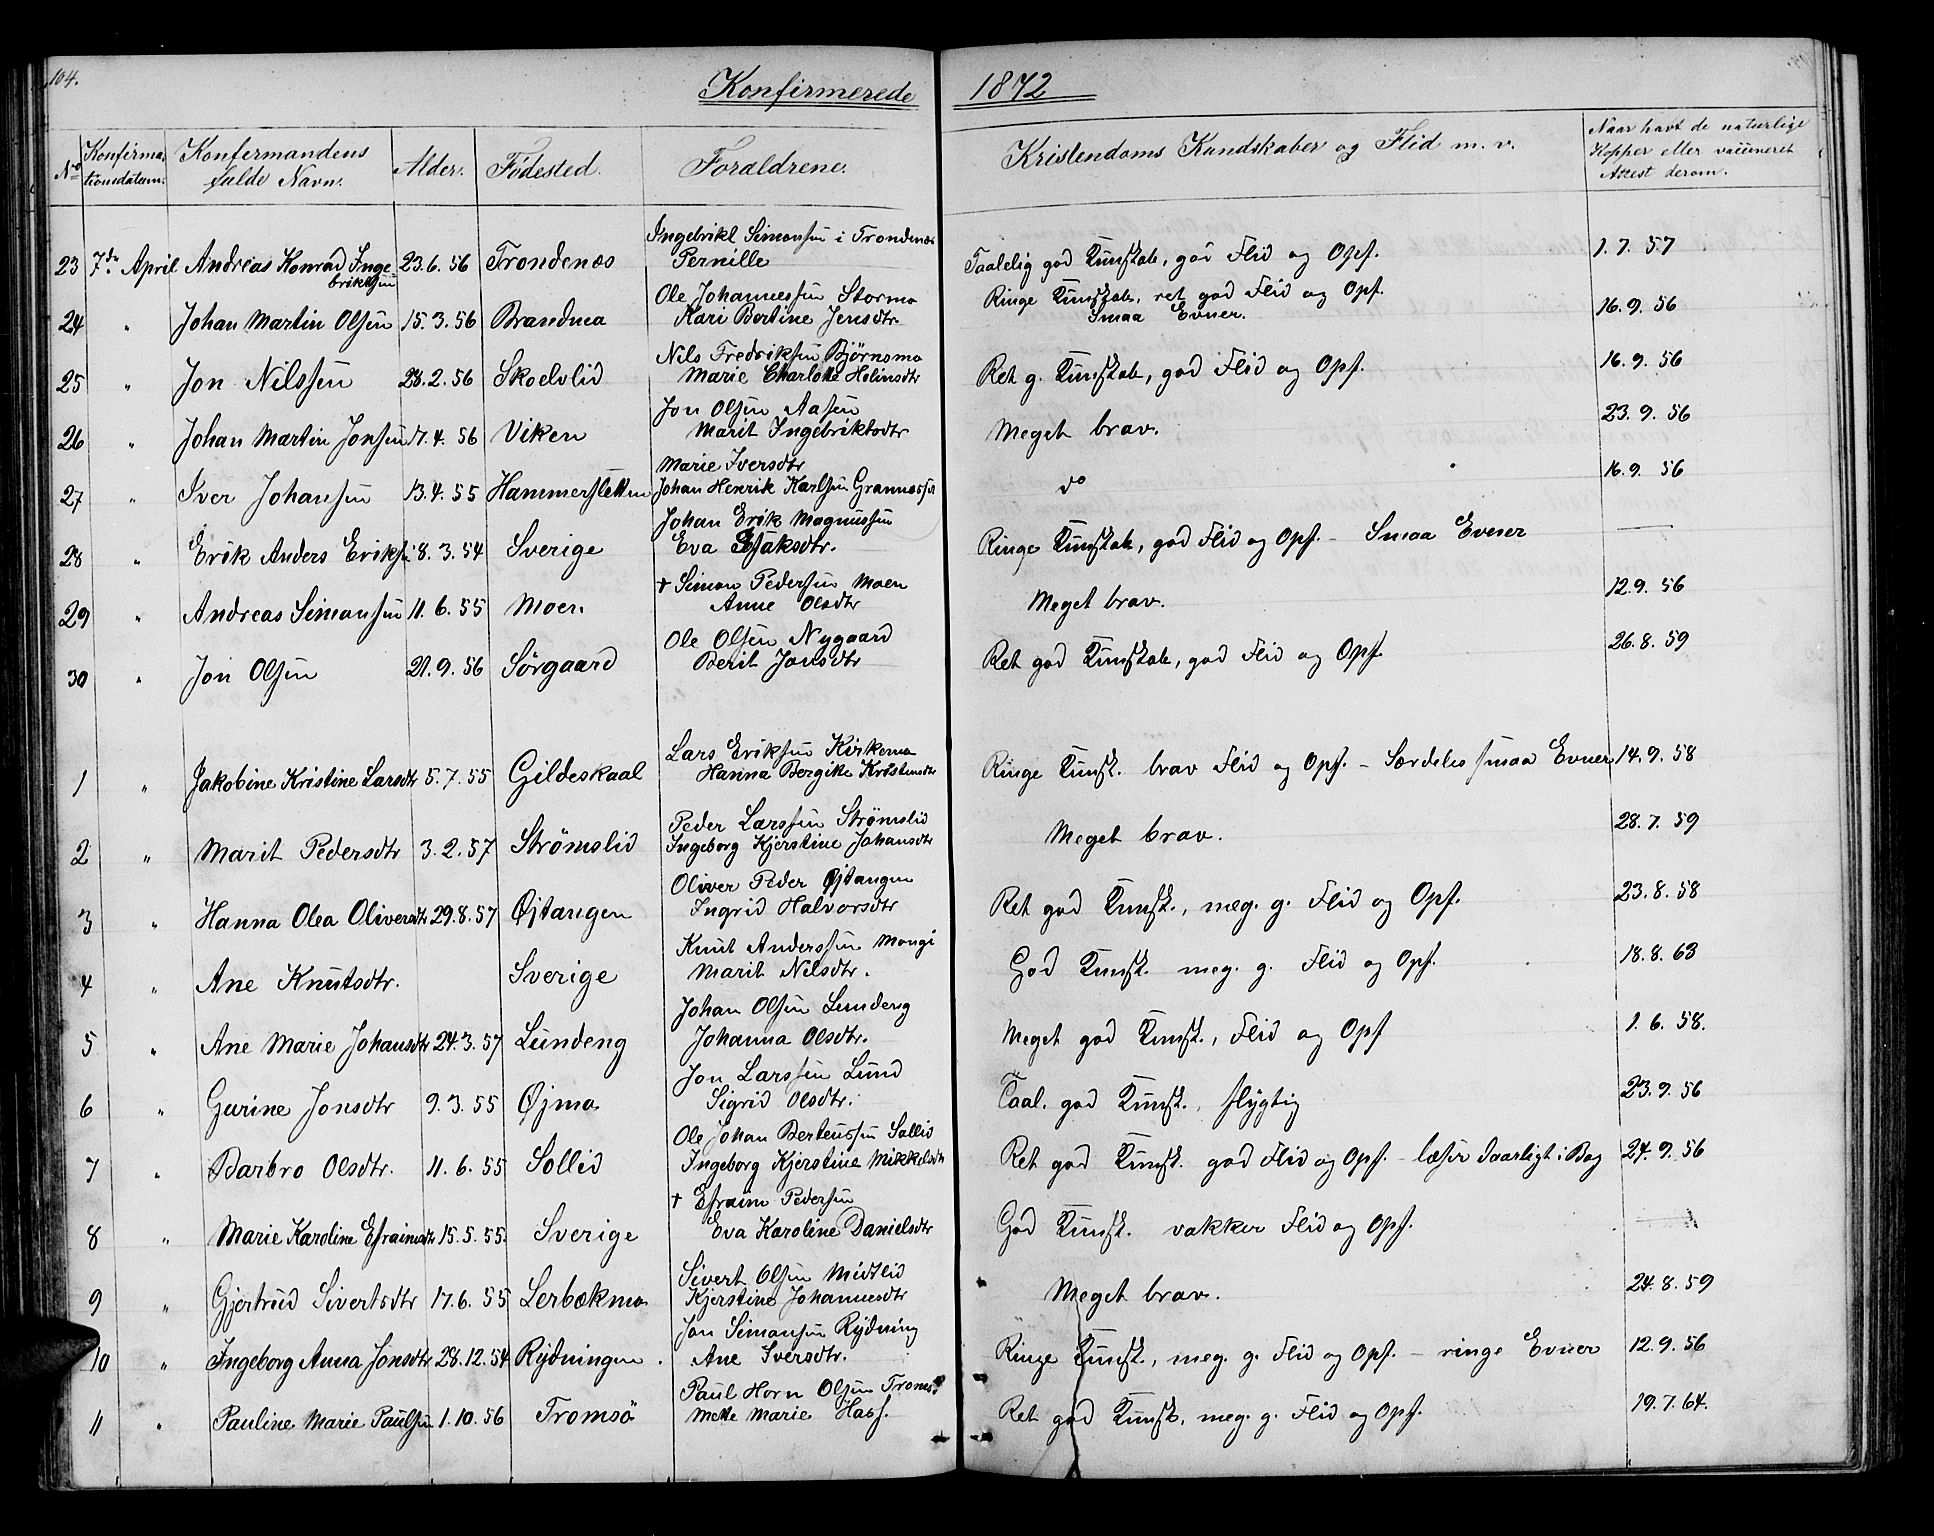 104.
Konfirmerede 1872
No Konfirma- tionsdatum. Konfermandens fulde Navn. Alder. Fødested. Foraldrene. Kristendoms Kundskaber og Flid m. v. Naar havt de naturlige Kopper eller vaccineret Attest derom.
23 7de April Andreas Konrad Inge- briktsen 23.6.56 Trondenæs Ingebrikt Simonsen i Trondenæs Pernille Taalelig god Kunskab, god Flid og Opf. 1.7.57
24 " Johan Martin Olsen 15.3.56 Brandmo Ole Johannessen Stormo Kari Bertine Jensdtr. Ringe Kunskab, ret god Flid og Opf. Smaa Evner. 16.9.56
25 " Jon Nilssen 28.2.56 Skoelvlid Nils Fredriksen Bjørnsmo Marie Charlotte Helinsdtr Ret g. Kunskab, god Flid og Opf. 16.9.56
26 " Johan Martin Jonsen 17.4.56 Viken Jon Olsen Aasen Marit Ingebriktsdtr Meget brav. 23.9.56
27 " Iver Johansen 13.4.55 Hammersletten Marie Iversdtr Johan Henrik Karlsen Grannæsset do 16.9.56
28 " Erik Anders Eriksen 8.3.54 Sverige Johan Erik Magnussen Eva Esaksdtr. Ringe Kunskab, god Flid og Opf. - Smaa Evner —
29 " Andreas Simonsen 11.6.55 Moen + Simon Pedersen Moen Anne Olsdtr Meget brav. 12.9.56
30 " Jon Olsen 21.9.56 Sörgaard Ole Olsen Nygaard Berit Jonsdtr Ret god Kunskab, god Flid og Opf. 26.8.59
1 " Jakobine Kristine Larsdtr 5.7.55 Gildeskaal Lars Eriksen Kirkemo Hanna Bergite Kristensdtr Ringe Kunsk. brav Flid og Opf. - Særdeles smaa Evner 14.9.58
2 " Marit Pedersdtr 3.2.57 Strömslid Peder Larssen Strømslid Ingeborg Kjerstine Johansdtr Meget brav. 28.7.59
3 " Hanna Olea Oliversdtr 29.8.57 Øjtangen Oliver Peder Øjtangen Ingrid Halvorsdtr Ret god Kunsk., meg. g. Flid og Opf. 23.8.58
4 " Ane Knutsdtr. Sverige Knut Anderssen Mongi Marit Nilsdtr. God Kunsk. meg. g. Flid og Opf. 18.8.63
5 " Ane Marie Johansdtr 24.3.57 Lundeng Johan Olsen Lundeng Johanna Olsdtr. Meget god Kunsk., Flid og Opf 1.6.58.
6 " Gurine Jonsdtr 9.3.55 Øjmo Jon Larssen Lund Sigrid Olsdtr. Taal. god Kunsk., flygtig 23.9.56
7 " Barbro Olsdtr. 11.6.55 Sollid Ole Johan Berteussen Sollid Ingeborg Kjerstine Mikkelsdtr Ret god Kunsk. god Flid og Opf. - læser daarligt i Bog 24.9.56
8 " Marie Karoline Efraimsdtr 15.5.55. Sverige + Efraim Pedersen Eva Karoline Danielsdtr God Kunsk. vakker Flid og Opf. —
9 " Gjertrud Sivertsdtr 17.6.55 Lerbækmo Sivert Olsen Midtlid Kjerstine Johannesdtr Meget brav. 24.8.59
10 " Ingeborg Anna Jonsdtr 28.12.54 Rydningen. Jon Simonsen Rydning Ane Iversdtr. Ringe Kunsk., meg. g. Flid og Opf. - ringe Evner 12.9.56
11 " Pauline Marie Paulsen 1.10.56 Tromsö Paul Horn Olsen Tromsø Mette Marie Hass. Ret god Kunsk, meg. g. Flid og Opf. 19.7.64.